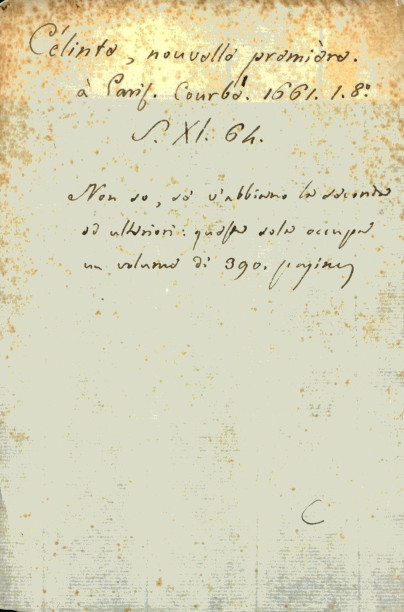 Célinte, nouvelle première.
à Paris. Courbé. 1661. 1. 8º.
S. XI. 64.
Non so, se v'abbiano le seconde
ed ulteriori: questa sola occupa
un volume di 390. pagine
C